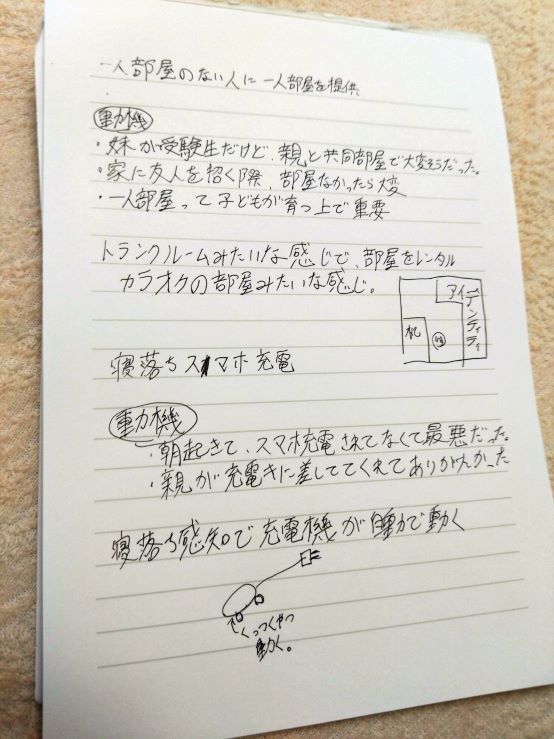 一人部屋のない人に一人部屋を提供
動機
・妹が受験生だけど、親と共同部屋で大変そうだった。
・家に友人を招く際、部屋なかったら大変
・一人部屋って子どもが育つ上で重要
トランクルームみたいな感じで、部屋をレンタル
カラオクの部屋みたいな感じ。
アイデンティティ
机
寝落ちスマホ充電
動機
・朝起きて、スマホ充電されてなくて最悪だった。
・親が充電きに差しててくれてありがたかった
寝落ち感知で充電機が自動で動く
くっつくやつ
動く。